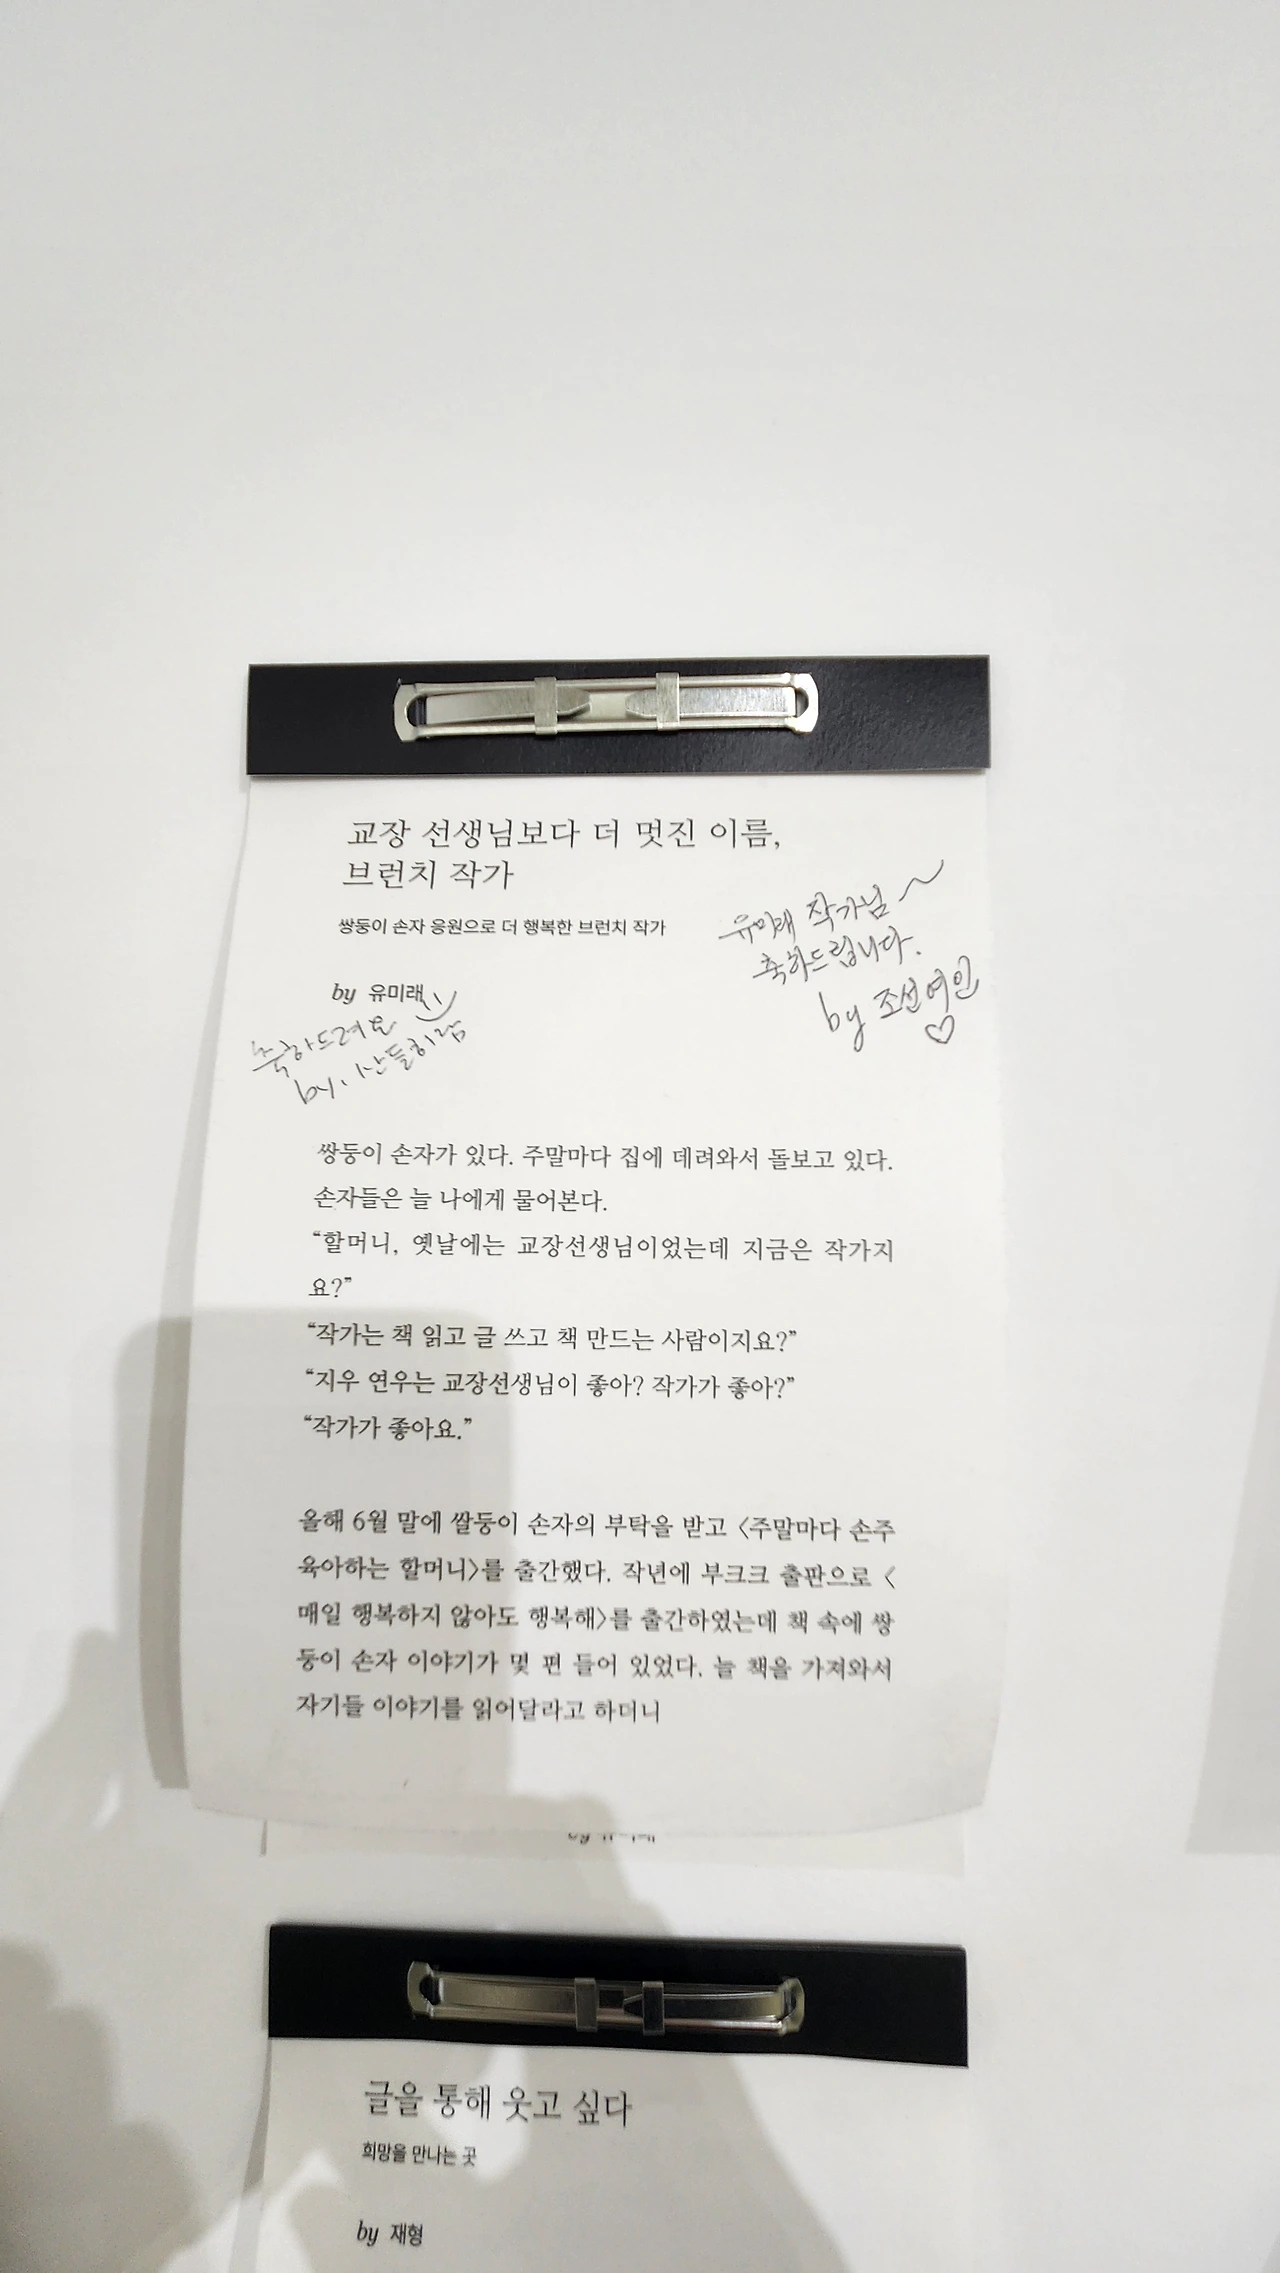 교장 선생님보다 더 멋진 이름,
브런치 작가
쌍둥이 손자 응원으로 더 행복한 브런치 작가
유미래 작가님~
축하드립니다.
by 조선여인
by 유미래
축하드려요
by. 산들바람
쌍둥이 손자가 있다. 주말마다 집에 데려와서 돌보고 있다.
손자들은 늘 나에게 물어본다.
“할머니, 옛날에는 교장선생님이었는데 지금은 작가지
요?”
“작가는 책 읽고 글 쓰고 책 만드는 사람이지요?”
“지우 연우는 교장선생님이 좋아? 작가가 좋아?”
“작가가 좋아요.”
올해 6월 말에 쌀둥이 손자의 부탁을 받고 〈주말마다 손주
육아하는 할머니〉를 출간했다. 작년에 부크크 출판으로 〈
매일 행복하지 않아도 행복해〉를 출간하였는데 책 속에 쌍
둥이 손자 이야기가 몇 편 들어 있었다. 늘 책을 가져와서
자기들 이야기를 읽어달라고 하더니
글을 통해 웃고 싶다
희망을 만나는 곳
by 재형